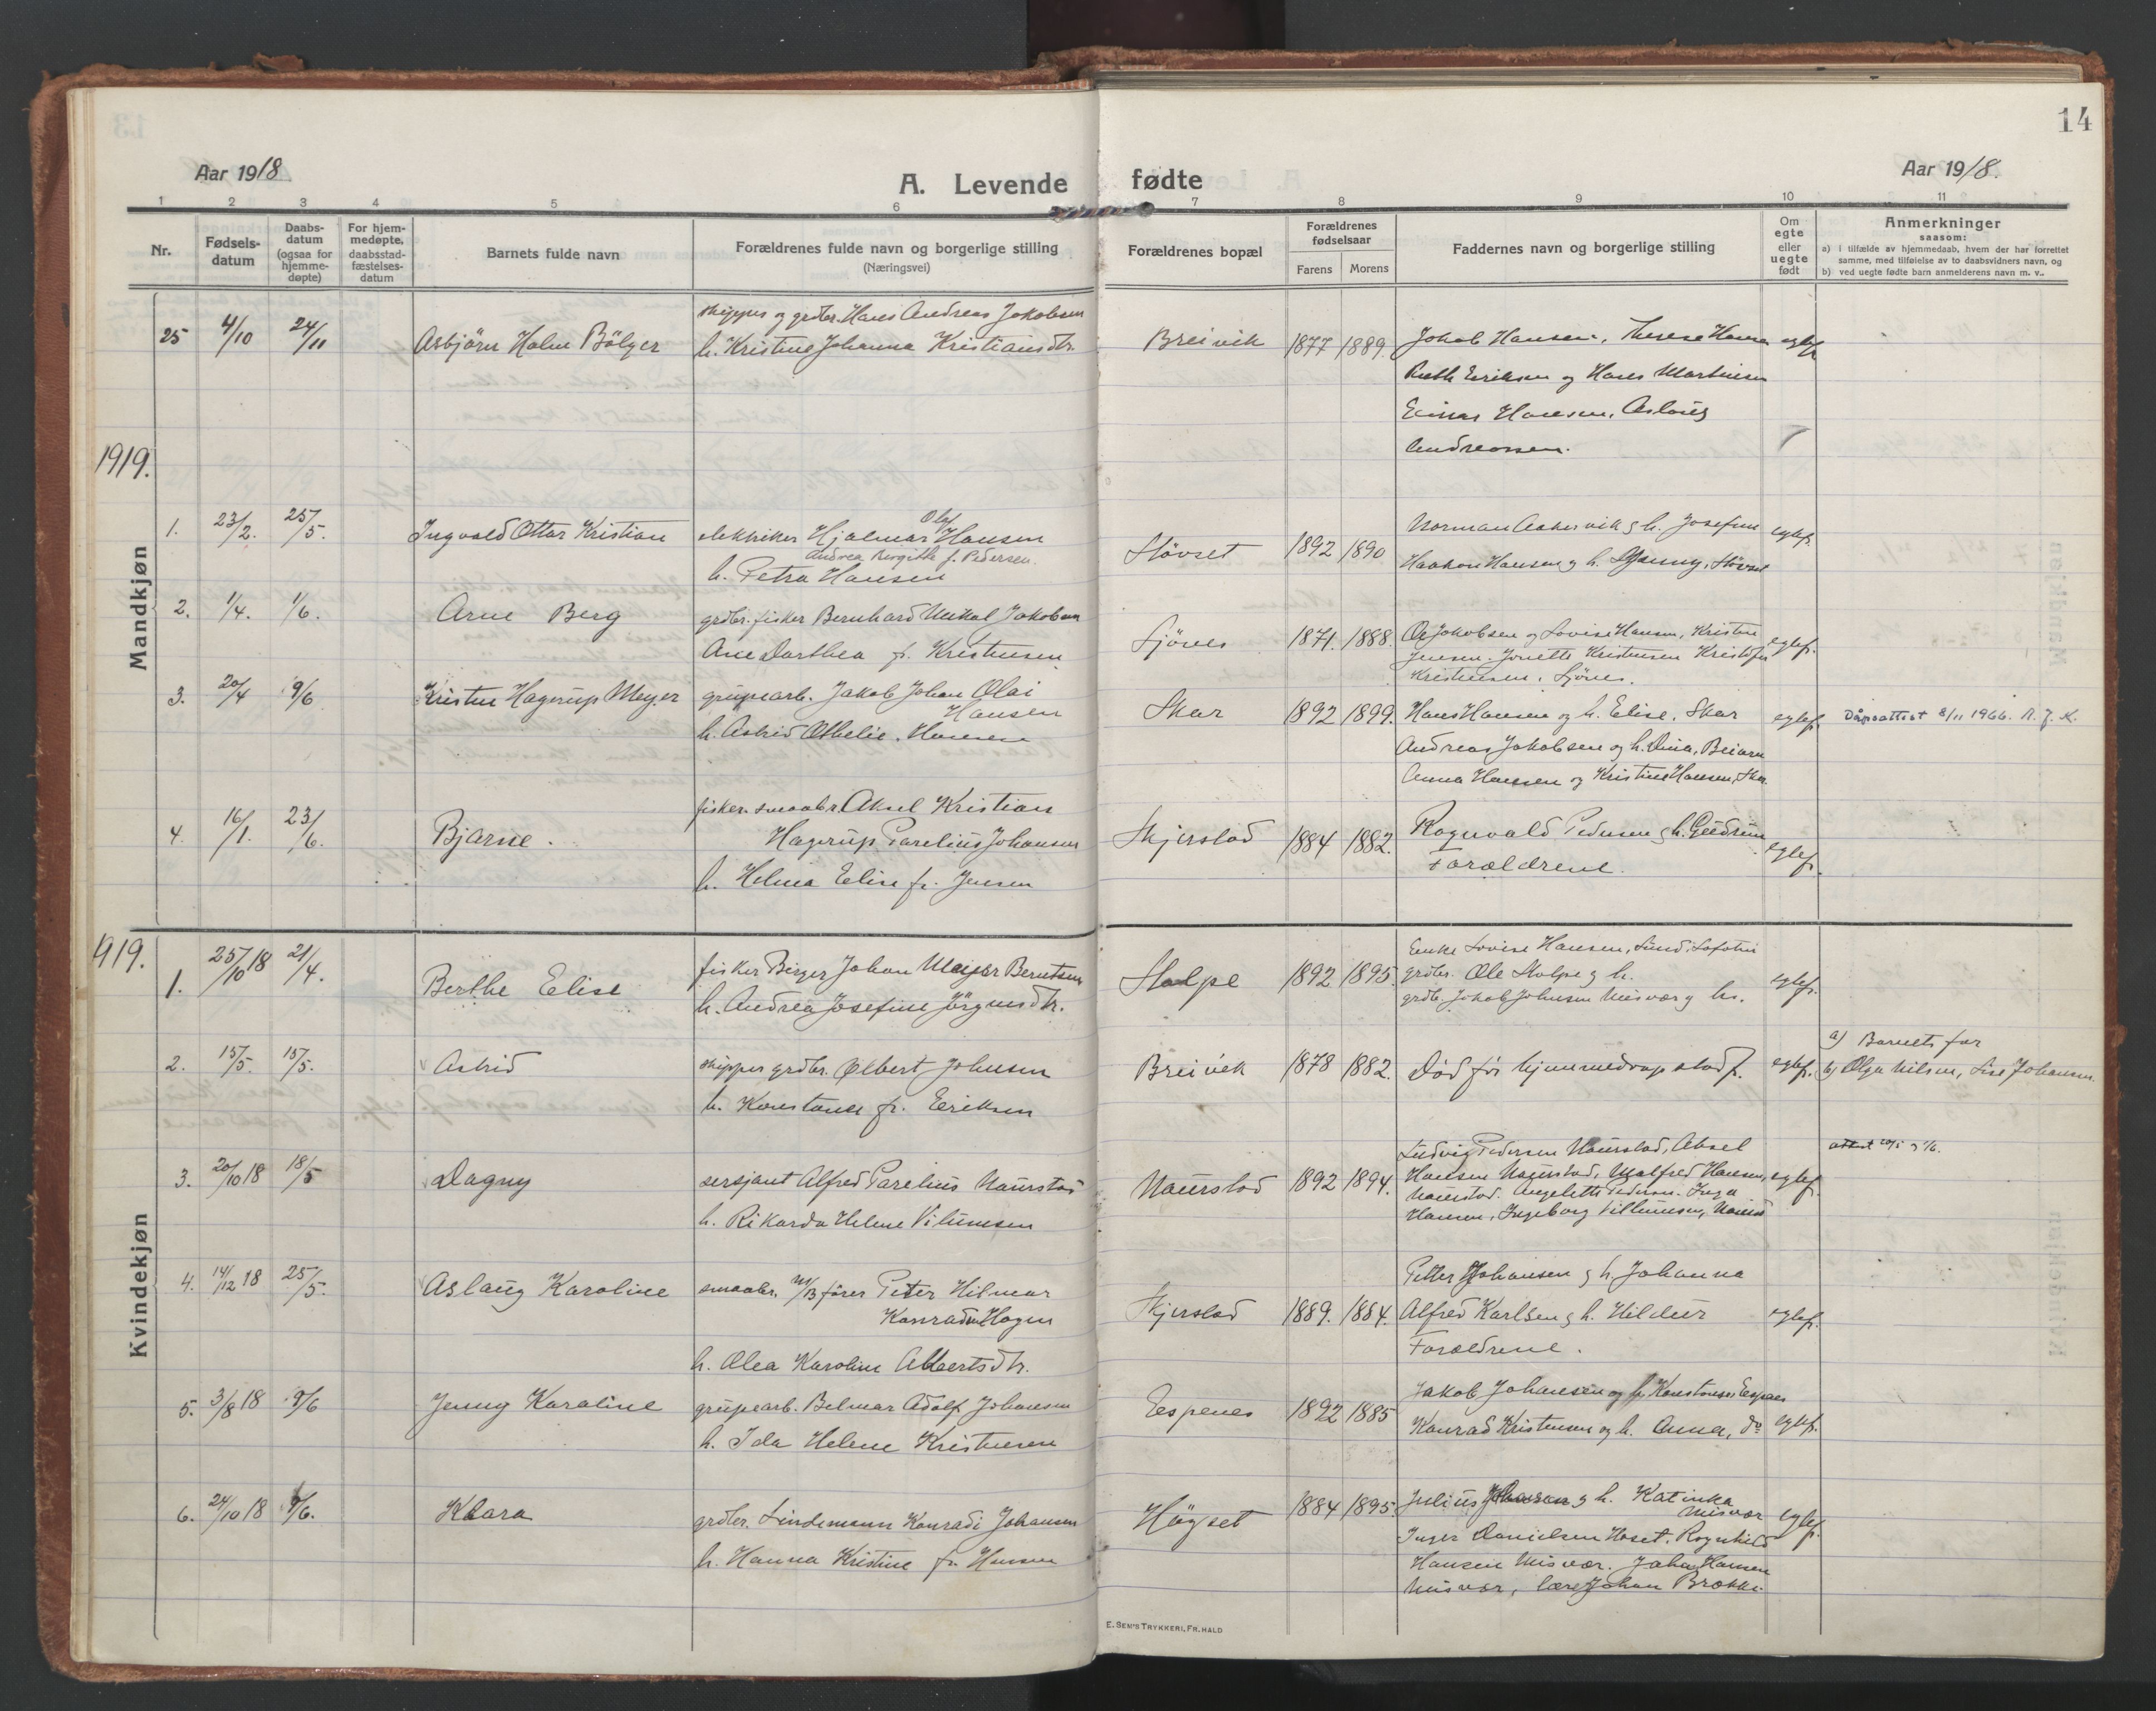 13
14
Aar 1918
A. Levende fødte
Aar 1918.
1 2 3 4 5 6 7 8 9 10 11
Nr.
Fødsels-
datum
Daabs-
datum
(ogsaa for
hjemme-
døpte)
For hjem-
medøpte,
daabsstad-
fæstelses-
datum
Barnets fulde navn
Forældrenes fulde navn og borgerlige stilling
(Næringsvei)
Forældrenes bopæl
Forældrenes
fødselsaar
Farens
Morens
Faddernes navn og borgerlige stilling
Om
egte
eller
uegte
født
Anmerkninger
saasom:
a) i tilfælde av hjemmedaab, hvem der har forrettet
samme, med tilføielse av to daabsvidners navn, og
b) ved uegte fødte barn anmelderens navn m. v..
25 4/10 24/11 Asbjörn Holm Bölger
skipper og grdbr. Hans Andreas Jakobsen
h. Kristine Johanna Kristiansdtr.
Breivik 1877 1889.
Jakob Hansen, Therese Hansen
Ruth Eriksen og Hans Martinsen
Einar Hansen, Aslaug
Andreassen.
egtef
1919.
Mandkjøn
1. 23/2. 25/5. Ingvald Ottar Kristian
elektriker Hjalmar Olaf Hansen
Andrea Birgitte f. Pedersen.
h. Petra Hansen
Støvset 1892 1890
Norman Aakervik g h. Josefine
Haakon Hansen g h. Støvset
egtef.
2. 1/4. 1/6. Arne Berg
grdbr. fisker Bernhard Mikal Jakobsen
Ane Dorthea f. Kristensen
Sjönes 1871. 1888.
Jakobsen og Lovise Hansen, Kristine
Jensen. Jonette Kristensen Kristofer
Kristensen, Sjönes.
egtef.
3. 20/4 9/6 Kristen Hagerup Meyer
grubearb. Jakob Johan Olai
Hansen
h. Astrid Othelie Hansen
Skar 1892 1899.
Hans Hansen og h. Elise, Skar
Andreas Jakobsen og h. Dina, Beiarn
Anna Hansen og Kristine Hansen, Skar
egtef.
Dåpsattest 8/11 1966. A. J. K.
4. 16/1. 23/6. Bjarne.
fisker. smaabr. Aksel Kristian
Hagerup Parelius Johansen
h. Helma Elise f. Jensen
Skjerstad 1884 1882.
Rognvald Pedersen g h. Gudrun
Forældrene.
egtef.
1919.
Kvindekjøn
1. 25/10 18 21/4. Berthe Elise
fisker Birger Johan Meyer Berntsen
h. Andrea Josefine Jörgensdtr.
Stolpe 1892 1895.
Enke Lovise Hansen, Sund, Lofoten
grdbr. Ole Stolpe g h.
grdb. Jakob Johnsen Misvær g h.
egtef.
2. 15/5. 15/5. Astrid
skipper grdbr. Albert Johnsen
h. Konstanse f. Eriksen
Breivik 1878 1882.
Död för hjemmedaap stadf.
egtef.
a) Barnets far
b) Olga Nilsen, Lise Johansen.
3. 20/10 18 18/5 Dagny
sersjant Alfred Parelius Naurstad
h. Rikarda Helene Vilumsen
Naurstad 1892 1894.
Ludvig Pedersen Naurstad, Aksel
Hansen Naurstad, Malfred Hansen,
Naurstad. Angelette Pedersen. Inga
Hansen, Ingeborg Villumsen, Naurstad
egtef.
attest 20/5
4. 14/12 18 25/5. Aslaug Karoline
smaabr. fører Peter Hilmar
Konradsen Hagen
h. Olea Karoline Albertsdtr.
Skjerstad 1889. 1884.
Petter Johansen g h. Johanna
Alfred Karlsen g h. Hildur
Forældrene.
egtef.
5. 3/8 18 9/6 Jenny Karoline
grubearb. Belmar Adolf Johansen
h. Ida Helene Kristensen
Espenes 1892 1885
Jakob Johansen og h. Konstanse Espenes
Konrad Kristensen og h. Anna, do
egtef.
6. 24/10 18 9/6. Klara
grdbr. Lindemann Konradi Johansen
h. Hanna Kristine f. Hansen
Högset 1884 1895.
Julius Johansen g h. Katinka
Misvær
Inger Danielsen Høset, Rognhild
Hansen Misvær. Johan Hansen
Misvær, lærer Johan Brække.
egtef.
E. SEM'S TRYKKERI, FR.HALD